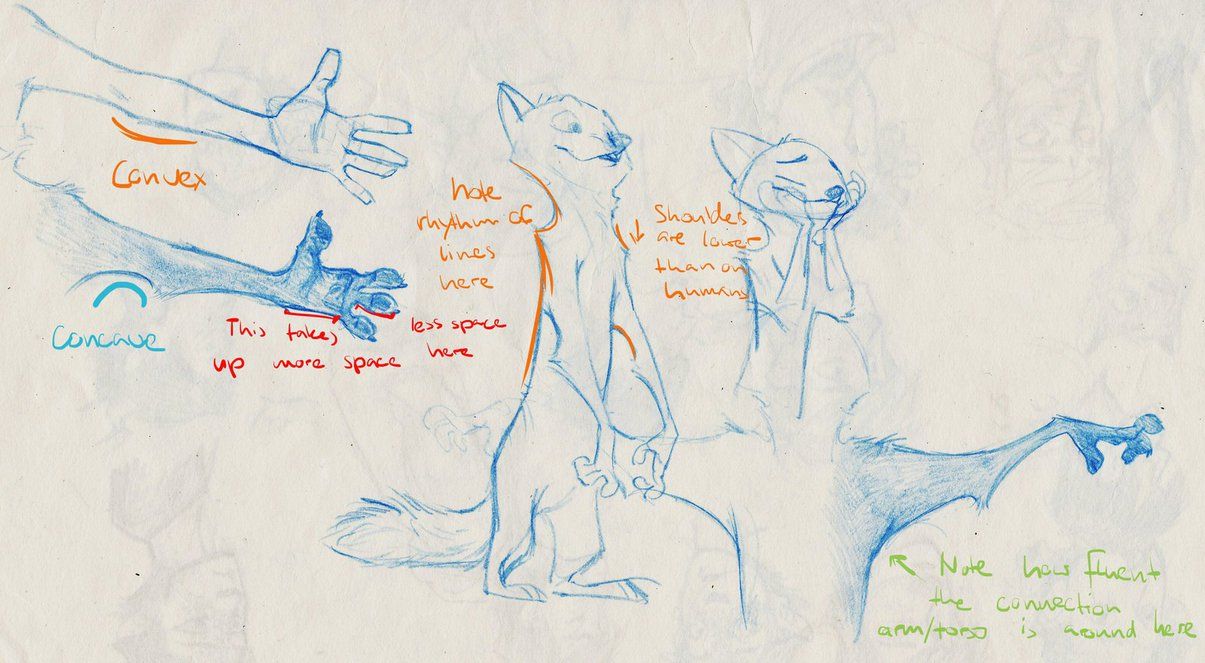 Convex
Concave
This takes
up more space
less space
here
Note
rhythm of
lines
here
Shoulders
are lower
than on
humans
Note how fluent
the connection
arm/torso is around here